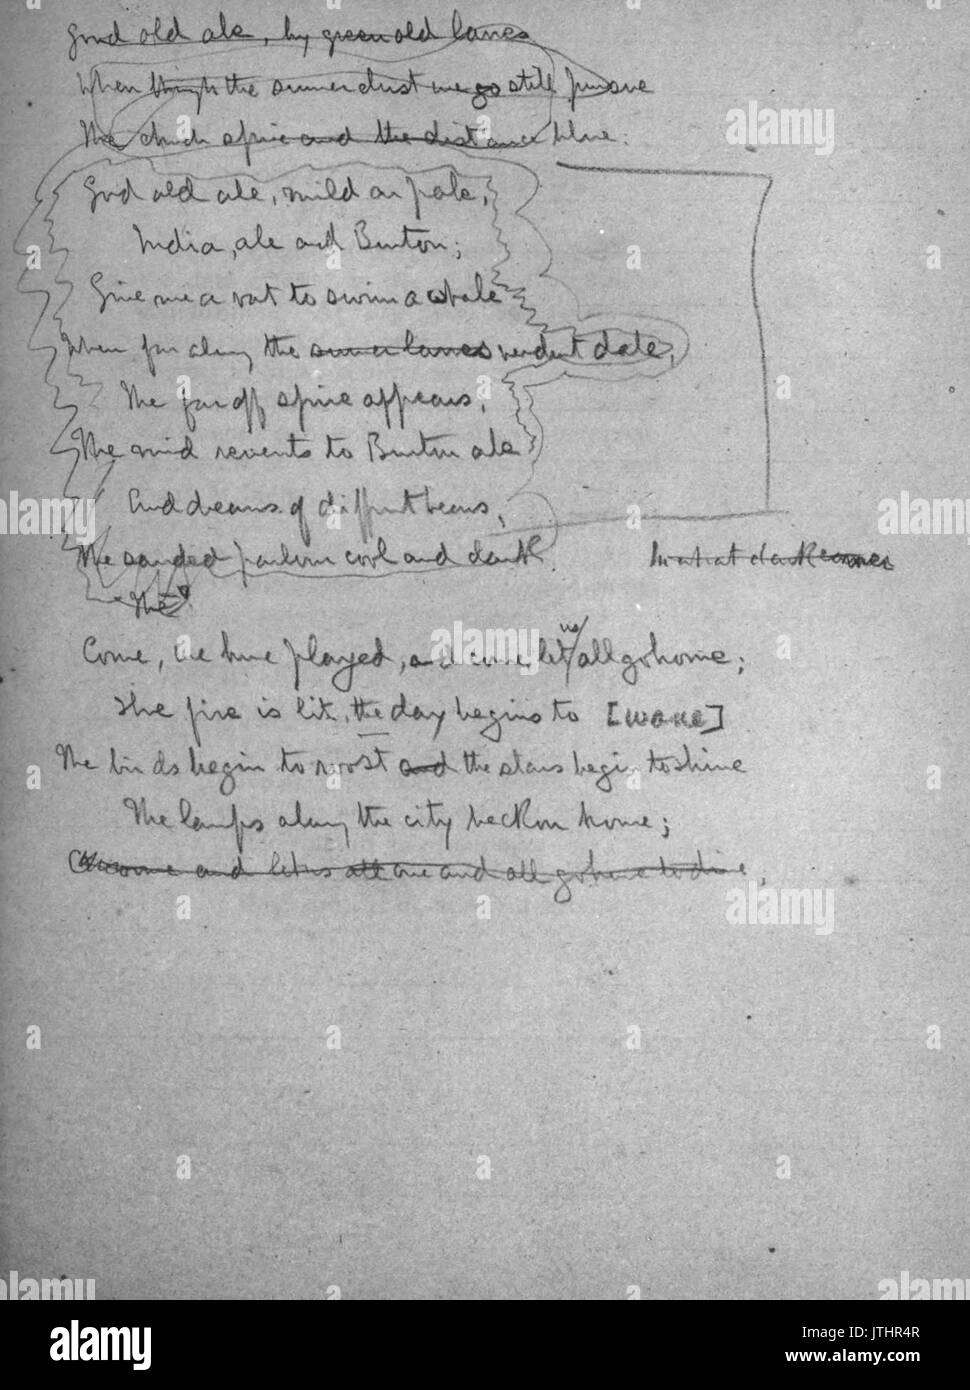 Good old ale, by green old lanes
When through the summer dust we go still pursue
The church spire and the distance blue.
Good old ale, mild or pale,
India, ale and Burton;
Give me a vat to swim a whale
When far along the summer lanes verdent date,
The far off spire appears,
The mind reverts to Burton ale
And dreams of different beers,
The sanded parlour cool and dark
In what dark corner
The
Come, we have played, and come let us all go home;
The fire is lit, the day begins to [wane]
The birds begin to roost and the stars begin to shine
The lamps along the city beckon home;
Come and let us all one and all go home to dine,
alamy
Image ID: JTHR4R
www.alamy.com